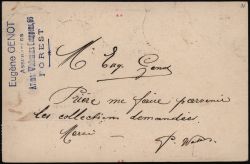 Eugène GENOT
FOREST
Mr Eug. Genot
Prière me faire parvenir
les collections demandées.
Merci